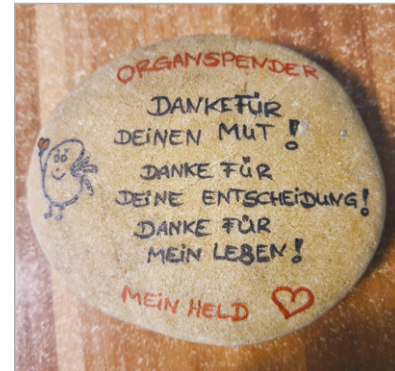 ORGANSPENDER
DANKE FÜR
DEINEN MUT!
DANKE FÜR
DEINE ENTSCHEIDUNG!
DANKE FÜR
MEIN LEBEN!
MEIN HELD